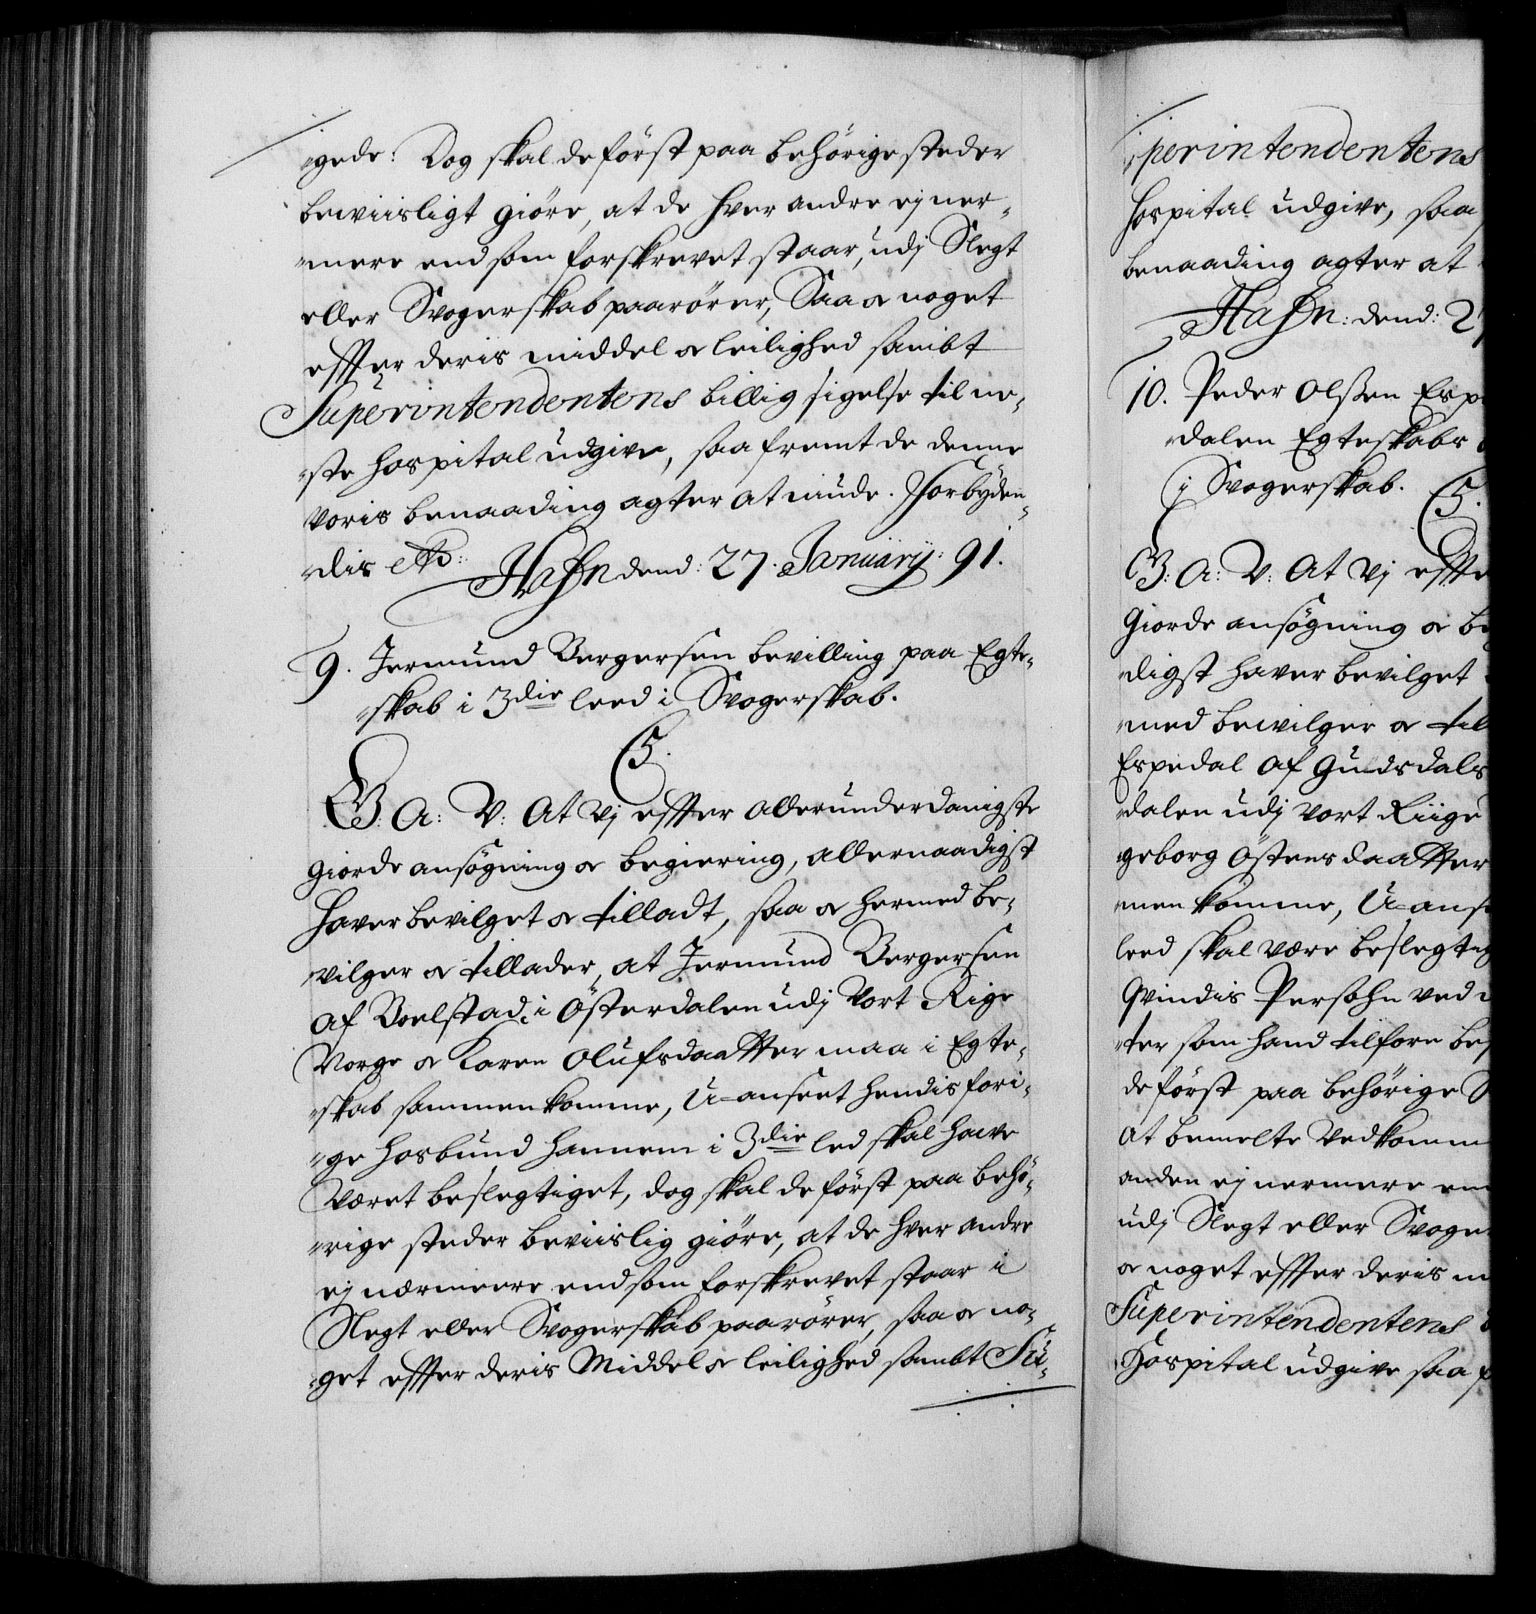 "gede: Dog skal de först paa behörige steder
bewiisligt giöre, at de hver andre ej ner-
"mere end som forskrevet staar, udj Slegt
eller Svogerskab paarörer, Saa og noget
effter deris middel og leilighed sambt
Superintendentens billig sigelse til ne-
"ste hospital udgive, saa fremt de denne
voris benaading agter at niude. Forbÿden-
"dis etc: Hafn dend: 27. Januarÿ: 91.
9. Jermund Bergersen bevilling paa Egte-
"skab i 3die leed i Svogerskab.
C5.
G. A: V: At vj effter allerunderdanigste
giorde ansögning og begiering, allernaadigst
haver bevilget og tilladt, saa og hermed be-
"vilger og tillader, at Jermund Bergersen
af Boelstad i Österdalen udj Vort Rige
Norge og Karen Olufsdaatter maa i Egte-
"skab sammenkomme, U-anseet hendis fori-
"ge hosbund hannem i 3die led skal have
været beslegtiget, dog skal de först paa behö-
"rige steder beviislig giöre, at de hver andre
ej nærmere end som forskrevet staar i
Slegt eller Svogerskab paarörer, saa og no-
"get effter deris Middel og leilighed sambt Su-
"perintendentens
hospital udgive, saa
benaading agter at
Hafn: dend: 27
10. Peder Olßen Esp
"dalen Egteskabs
i Svogerskab. C5.
G: A: V: At vj effte
giorde ansögning og be
"digst haver bevilget
"med bewilger og till
Espedal af Gudsdals
"dalen udj vort Riige
"geborg Östensdaatter
"men komme, U-anse
leed skal være beslegtig
Qvindis Persohn ved
"ter som hand tilforn bes
de först paa behörige S
at bemelte Vedkomm
anden ej nermere en
udj Slegt eller Svoge
og noget effter deris m
Superintendentens b
Hospital udgive saa f